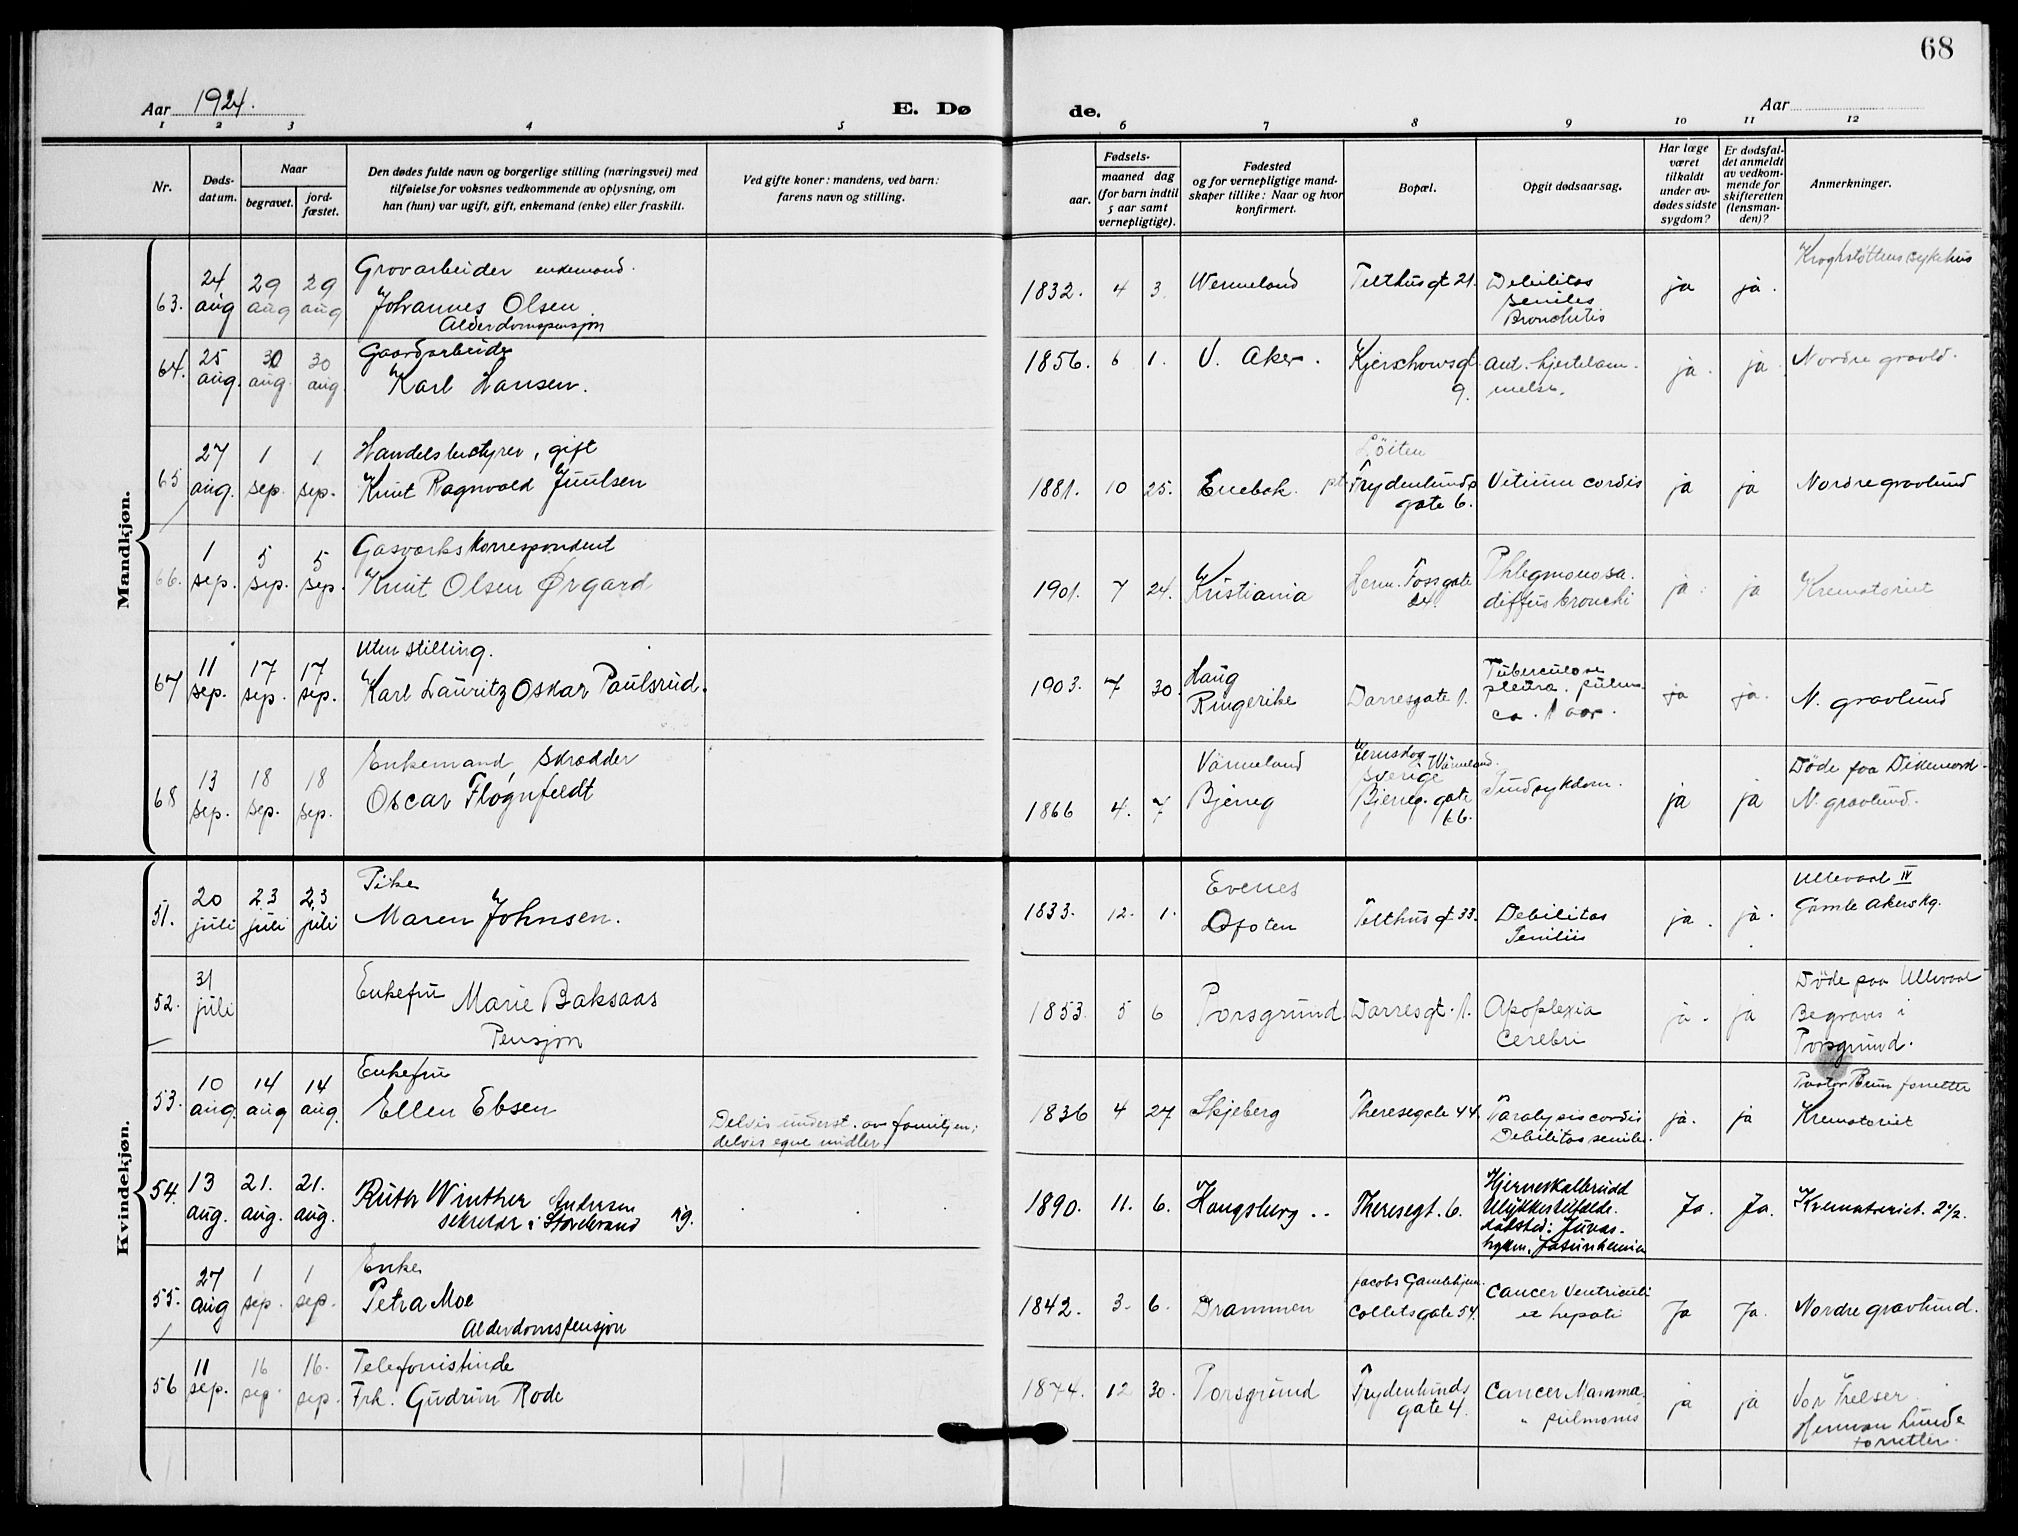 68
Aar 1924. E. Dø de. Aar
1 2 3 4 5 6 7 8 9 10 11 12
Nr. Døds-datum. Naar begravet. jord-fæstet. Den dødes fulde navn og borgerlige stilling (næringsvei) med tilføielse for voksnes vedkommende av oplysning, om han (hun) var ugift, gift, enkemand (enke) eller fraskilt. Ved gifte koner: mandens, ved barn: farens navn og stilling. Fødsels- aar. maaned dag (for barn indtil 5 aar samt vernepligtige). Fødested og for vernepligtige mandskaper tillike: Naar og hvor konfirmert. Bopæl. Opgit dødsaarsag. Har læge været tilkaldt under avdødes sidste sygdom? Er dødsfaldet anmeldt av vedkommende for skifteretten (lensmanden)? Anmerkninger.
Mandkjøn.
63. 24 aug 29 aug 29 aug Grovarbeider enkemand. Johannes Olsen Alderdomspensjon 1832. 4 3. Wermeland Telthusgt 21. Debilitas seniles Bronchitis ja ja. Kroghstøttens sykehus
64. 25 aug. 30 aug. 30 aug. Gaardarbeider Karl Hansen. 1856. 6 1. V. Aker. Kjerschowsgt. 9. Ant. hjertelammelse. ja. ja. Nordre gravld.
65 27 aug. 1 sep. 1 sep. Handelsbestyrer, gift Knut Ragnvald Juulsen 1881. 10 25. Enebak. Løiten pt Frydenlunds gate 6. Vitium cordis ja ja Nordre gravlund
66. 1 sep. 5 sep. 5 sep. Gasværkskorrespondent Knut Olsen Ørgard 1901. 7 24. Kristiania Herm. Fossgate 24. Phlegmonosa. diffus bronchi ja ja Krematoriet
67 11 sep. 17 sep. 17 sep. Uten stilling. Karl Lauritz Oskar Paulsrud. 1903. 7 30. Haug Ringerike Darresgate 1. Tuberculose pleura. pulm. ca. 1 aar. ja ja. N. gravlund
68 13 sep. 18 sep. 18 sep. Enkemand, skrædder Oscar Flognfeldt 1866 4. 7 Värmeland Bjerreg Värmeland. Sverige Bjerreg. gate ja ja Døde paa Dikemark N. gravlund.
Kvindekjøn.
51. 20 juli 23 juli 23 juli Pike Maren Johnsen. 1833. 12. 1. Evenes Ofoten Telthusgt. 33. Debilitas Seniliis ja. ja. Ullevaal IV Gamle Akers kg.
52. 31 juli Enkefru Marie Baksaas Pensjon 1853. 5 6 Porsgrund Darresgt. 1. Apoplexia Cerebri ja. ja Døde paa Ullevaal Begraves i Porsgrund.
53. 10 aug. 14 aug 14 aug. Enkefru Ellen Ebsen Delvis underst. av familjen; delvis egne midler. 1836 4 27 Skjeberg Theresegate 44. Paralysis cordis Debilitas senile. ja. ja Pastor Bruun forretter Krematoriet
54. 13 aug. 21. aug. 21. aug. Ruth Winther Andersen sekretær i Storebrand ug. 1890. 11. 6. Kongsberg.. Theresegt. 6. Hjerneskalbrudd Ulykkestilfælde. dødssted: Juvashytten, Jotunheimen Ja. Ja. Krematoriet. 2 1/2.
55. 27 aug 1 sep. 1 sep. Enke Petra Moe Alderdomspensjon 1842. 3. 6. Drammen Jacobs Gamlehjem. Colletsgate 54. Cancer Ventriculi et hepatis Ja Ja. Nordre gravlund.
56 11 sep. 16 sep. 16. sep. Telefonistinde Frk. Gudrun Rode 1874. 12 30. Porsgrund Frydenlunds gate 4. Cancer Mamma. " pulmonis ja ja Vor Frelser Herman Lunde forretter.